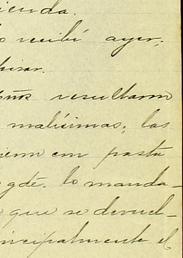 ienda.
recibí ayer,
resultaron
malísimas, las
en pasta
gde. lo manda-
que se devuel-
incipalmente el